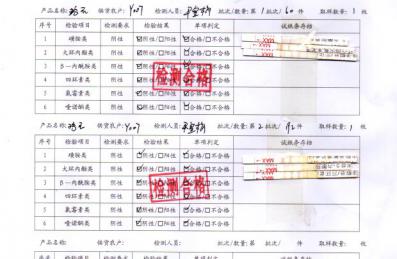 产品名称: 鸡蛋 供货农户: Y007 检测人员: 批次/数量: 第 1 批次/ 60 件 取样数量: 1 枚
序号 检验项目 检测要求 检验结果 单项判定 试纸条存档
1 磺胺类 阴性 ☑阴性/□阳性 ☑合格/□不合格
2 大环内酯类 阴性 ☑阴性/□阳性 ☑合格/□不合格
3 β-内酰胺类 阴性 ☑阴性/□阳性 ☑合格/□不合格
4 四环素类 阴性 ☑阴性/□阳性 ☑合格/□不合格
5 氯霉素类 阴性 ☑阴性/□阳性 ☑合格/□不合格
6 喹诺酮类 阴性 ☑阴性/□阳性 ☑合格/□不合格
检测合格
产品名称: 鸡蛋 供货农户: Y007 检测人员: 批次/数量: 第 2 批次/ 件 取样数量: 1 枚
序号 检验项目 检测要求 检验结果 单项判定 试纸条存档
1 磺胺类 阴性 ☑阴性/□阳性 ☑合格/□不合格
2 大环内酯类 阴性 ☑阴性/□阳性 ☑合格/□不合格
3 β-内酰胺类 阴性 ☑阴性/□阳性 ☑合格/□不合格
4 四环素类 阴性 ☑阴性/□阳性 ☑合格/□不合格
5 氯霉素类 阴性 ☑阴性/□阳性 ☑合格/□不合格
6 喹诺酮类 阴性 ☑阴性/□阳性 ☑合格/□不合格
检测合格
产品名称: 供货农户: 检测人员: 批次/数量: 第 批次/ 件 取样数量: 枚
序号 检验项目 检测要求 检验结果 单项判定 试纸条存档